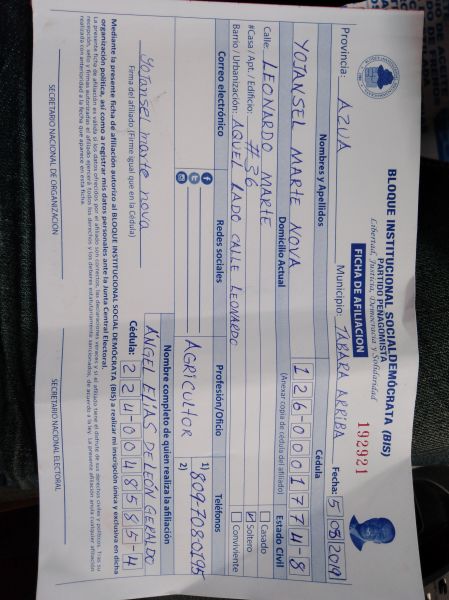 BLOQUE INSTITUCIONAL SOCIALDEMÓCRATA (BIS)
PARTIDO PEÑAGOMISTA
Libertad, Justicia, Democracia y Solidaridad
FICHA DE AFILIACIÓN
192921
Provincia: AZUA Municipio: TABARA ARRIBA Fecha: 5/08/2019
Nombres y Apellidos
Cédula
YOTANSEL MARTE NOVA
126-0001774-8
(Anexar copia de cédula del afiliado)
Domicilio Actual
Estado Civil
Calle: LEONARDO MARTE
Casado
#Casa / Apt. / Edificio: #36
Soltero
Barrio / Urbanización: AQUEL LADO CALLE LEONARDO
Conviviente
Correo electrónico
Redes sociales
Profesión/Oficio
Teléfonos
AGRICULTOR
1) 8097080195
2)
Yotansel marte nova
Firma del afiliado (Firme igual que en la Cédula)
Nombre completo de quien realiza la afiliación
ÁNGEL ELIAS DE LEÓN GERALDO
Cédula: 224-0048585-4
Mediante la presente ficha de afiliación autorizo al BLOQUE INSTITUCIONAL SOCIAL DEMÓCRATA (BIS) a realizar mi inscripción única y exclusiva en dicha
organización política, así como a registrar mis datos personales ante la Junta Central Electoral.
SECRETARIO NACIONAL DE ORGANIZACIÓN
SECRETARIO NACIONAL ELECTORAL